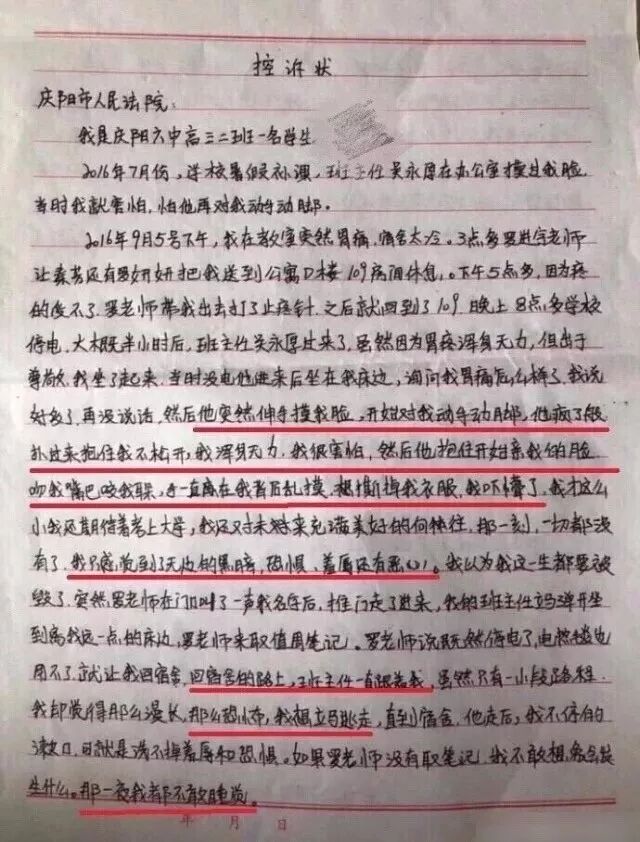 控诉状
庆阳市人民法院:
我是庆阳六中高三二班一名学生
2016年7月份,学校暑假补课,班主任吴永厚在办公室摸过我脸
当时我就害怕,怕他再对我动手动脚。
2016年9月5号下午,我在教室突然胃痛,宿舍太冷。3点多罗进宇老师
让秦芳还有罗妞妞把我送到公寓D楼109房间休息。下午5点多,因为疼
的受不了.罗老师带我出去打了止疼针.之后就回到了109.晚上8点多学校
停电.大概半小时后,班主任吴永厚过来了,虽然因为胃疼浑身无力,但出于
尊敬,我坐了起来.当时没电他进来后坐在我床边,询问我胃痛怎么样了.我说
好多了.再没说话,然后他突然伸手摸我脸,开始对我动手动脚,他疯了般
扑过来抱住我不松开,我浑身无力.我很害怕,然后他抱住开始亲我的脸
吻我嘴巴咬我耳朵,手一直离在我背后乱摸.想撕掉我衣服,我吓懵了.我才这么
小我还期待着考上大学,我还对未来充满美好的向往,那一刻,一切都没
有了.我只感觉到了无边的黑暗,恐惧、羞辱还有恶心。我以为我这一生都要被
毁了.突然罗老师在门口叫了一声我名字后,推门走了进来,我的班主任立马弹开坐
到离我远一点的床边,罗老师来取值周笔记。罗老师说既然停电了,电热毯也
用不了.就让我回宿舍,回宿舍的路上,班主任一直跟着我,虽然只有一小段路程.
我却觉得那么漫长,那么恐怖,我想立马逃走,直到宿舍,他走后,我不停的
漱口,可就是洗不掉羞辱和恐惧。如果罗老师没有取笔记,我不敢想象会发
生什么.那一夜我都不敢睡觉。
年 月 日